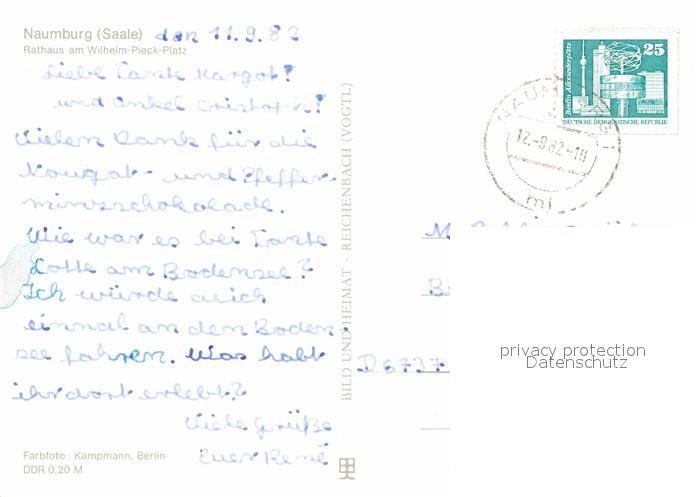 Naumburg (Saale) den 11.9.82
Rathaus am Wilhelm-Pieck-Platz
Liebe Tante Margot!
und Onkel Cristoph!
Vielen Dank für die
Nougat- und Pfeffer-
minzschokolade.
Wie war es bei Tante
Lotte am Bodensee?
Ich würde auch
einmal an den Boden-
see fahren. Was habt
ihr dort erlebt?
Viele Grüße
Euer René
Farbfoto: Kampmann, Berlin
DDR 0,20 M
BILD UND HEIMAT · REICHENBACH (VOGTL)
Berlin Alexanderplatz
25
DEUTSCHE DEMOKRATISCHE REPUBLIK
12.-9.82-18
m1
D 6737
privacy protection
Datenschutz